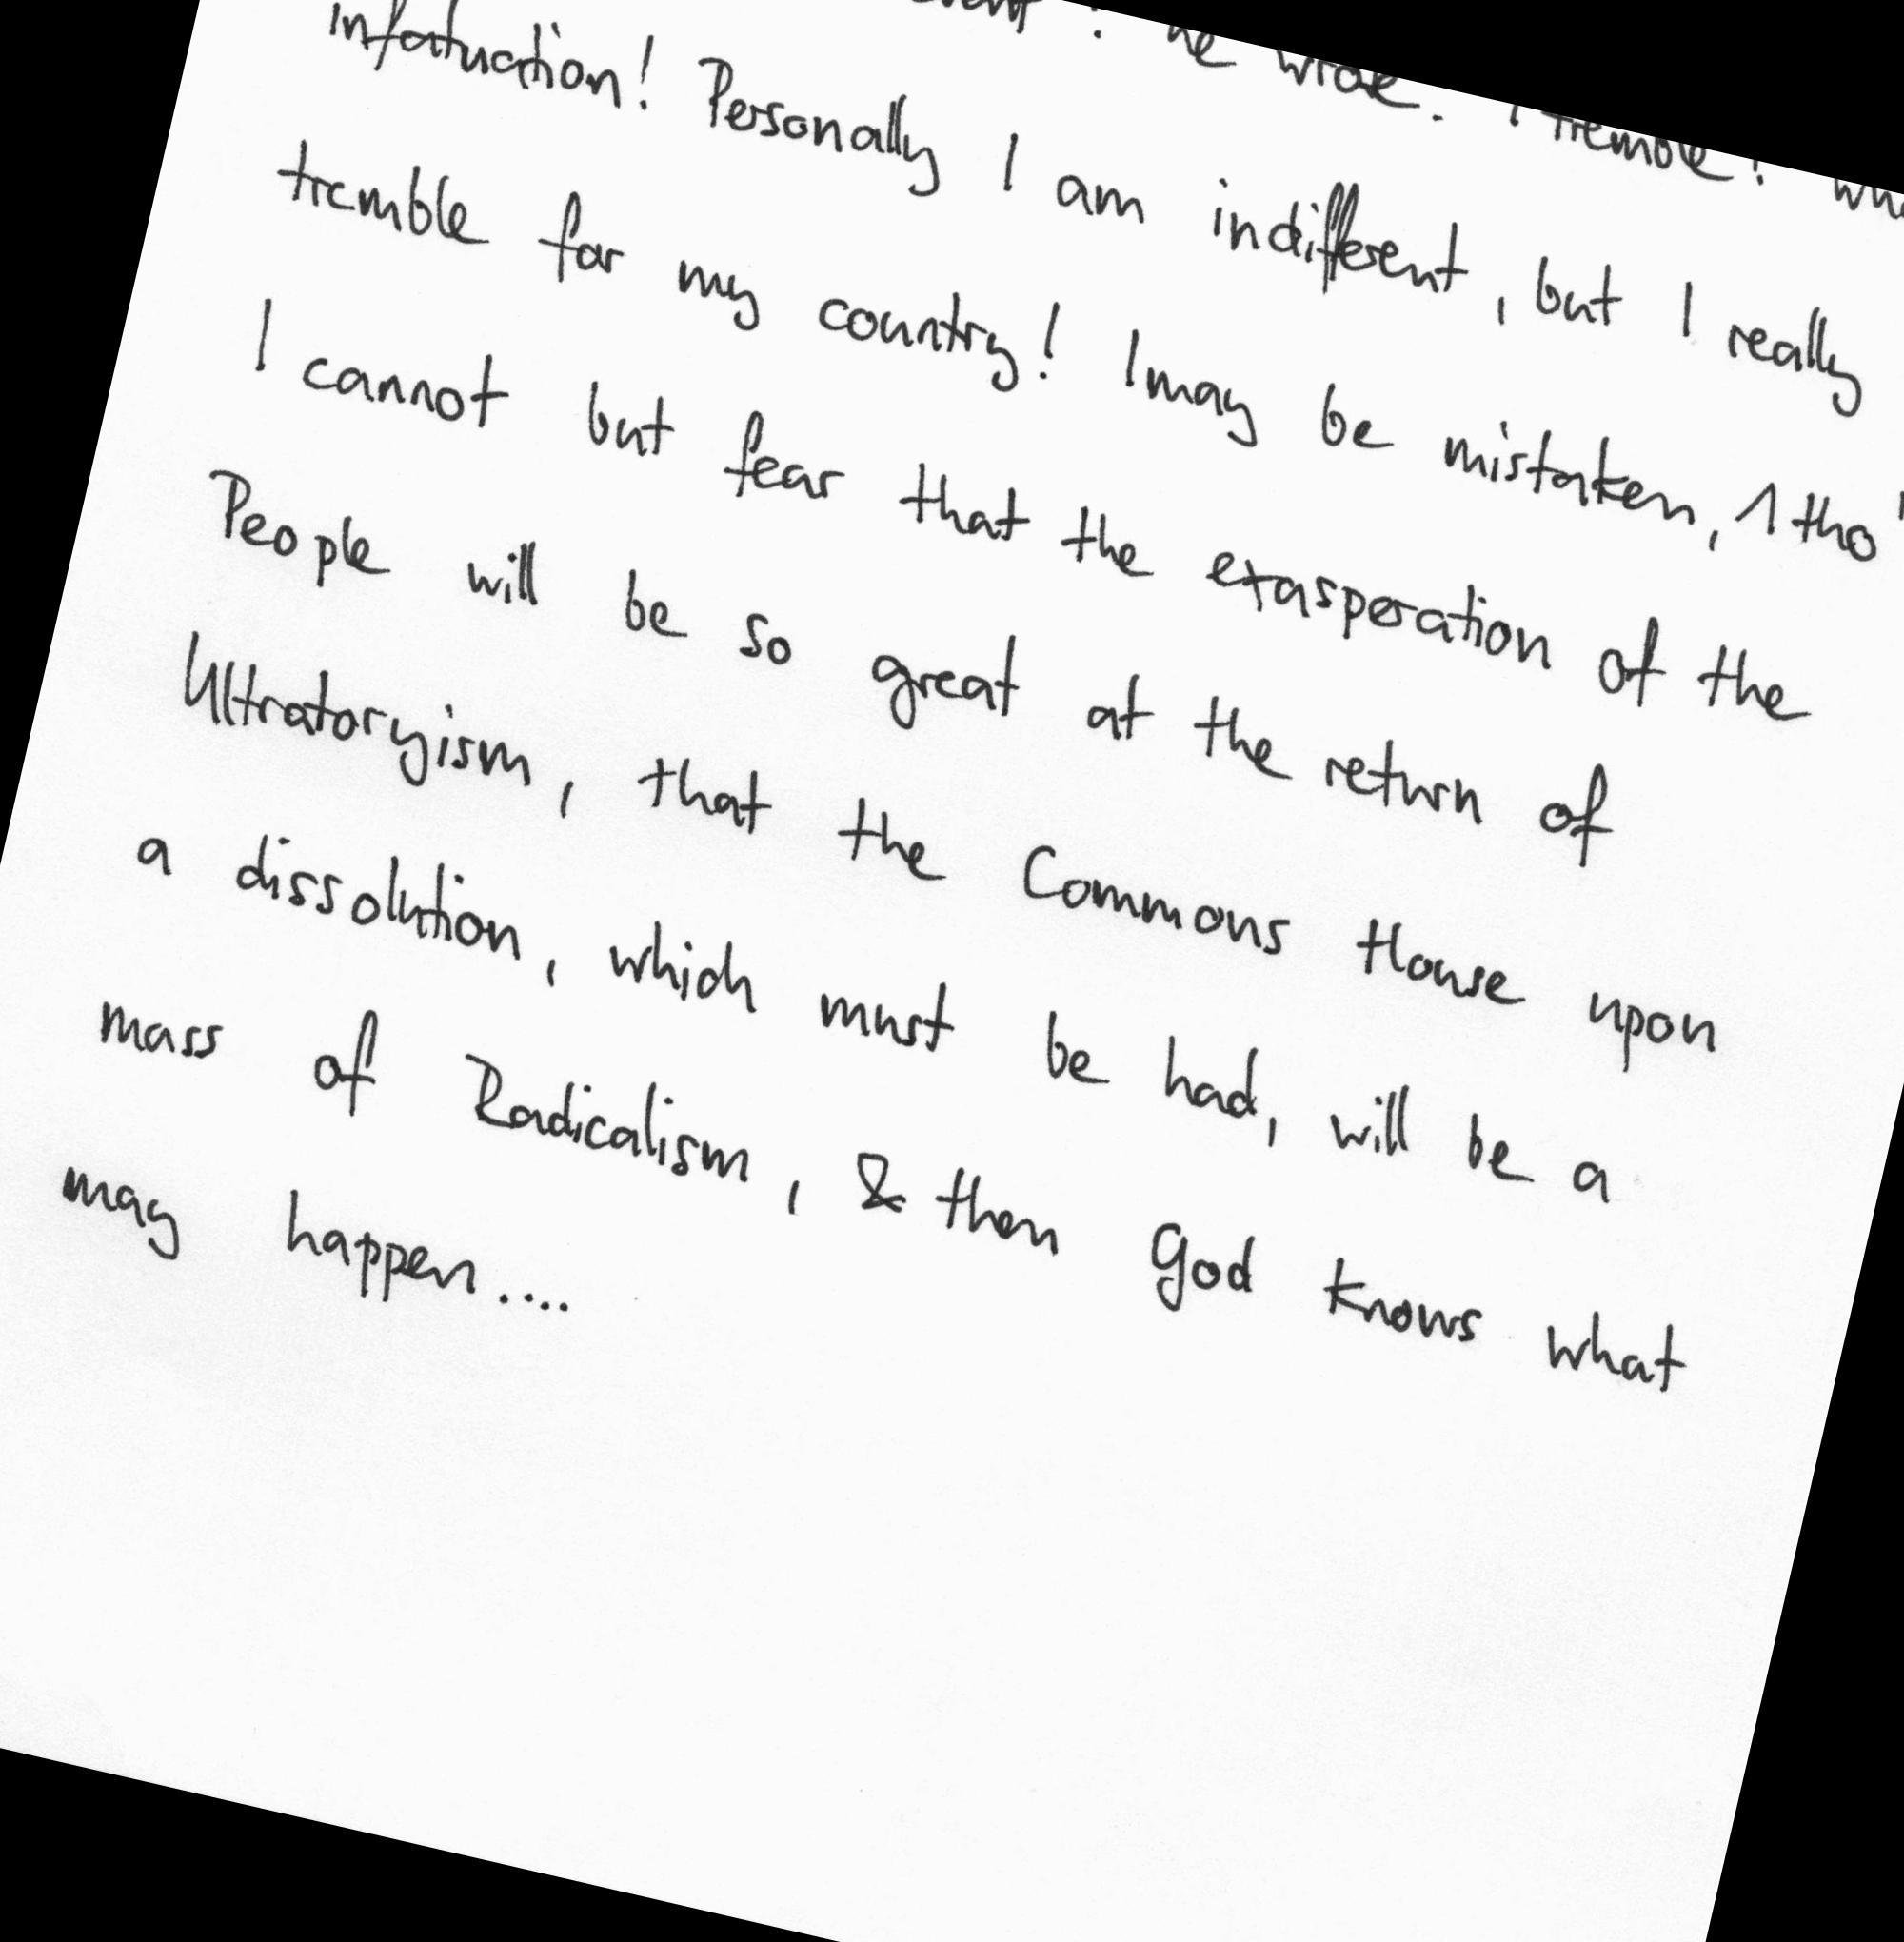 he wrote. I tremble! 
infatuation! Personally I am indifferent, but I really
tremble for my country! I may be mistaken, tho'
I cannot but fear that the exasperation of the
People will be so great at the return of
Ultratoryism, that the Commons House upon
a dissolution, which must be had, will be a
mass of Radicalism, & then God knows what
may happen....